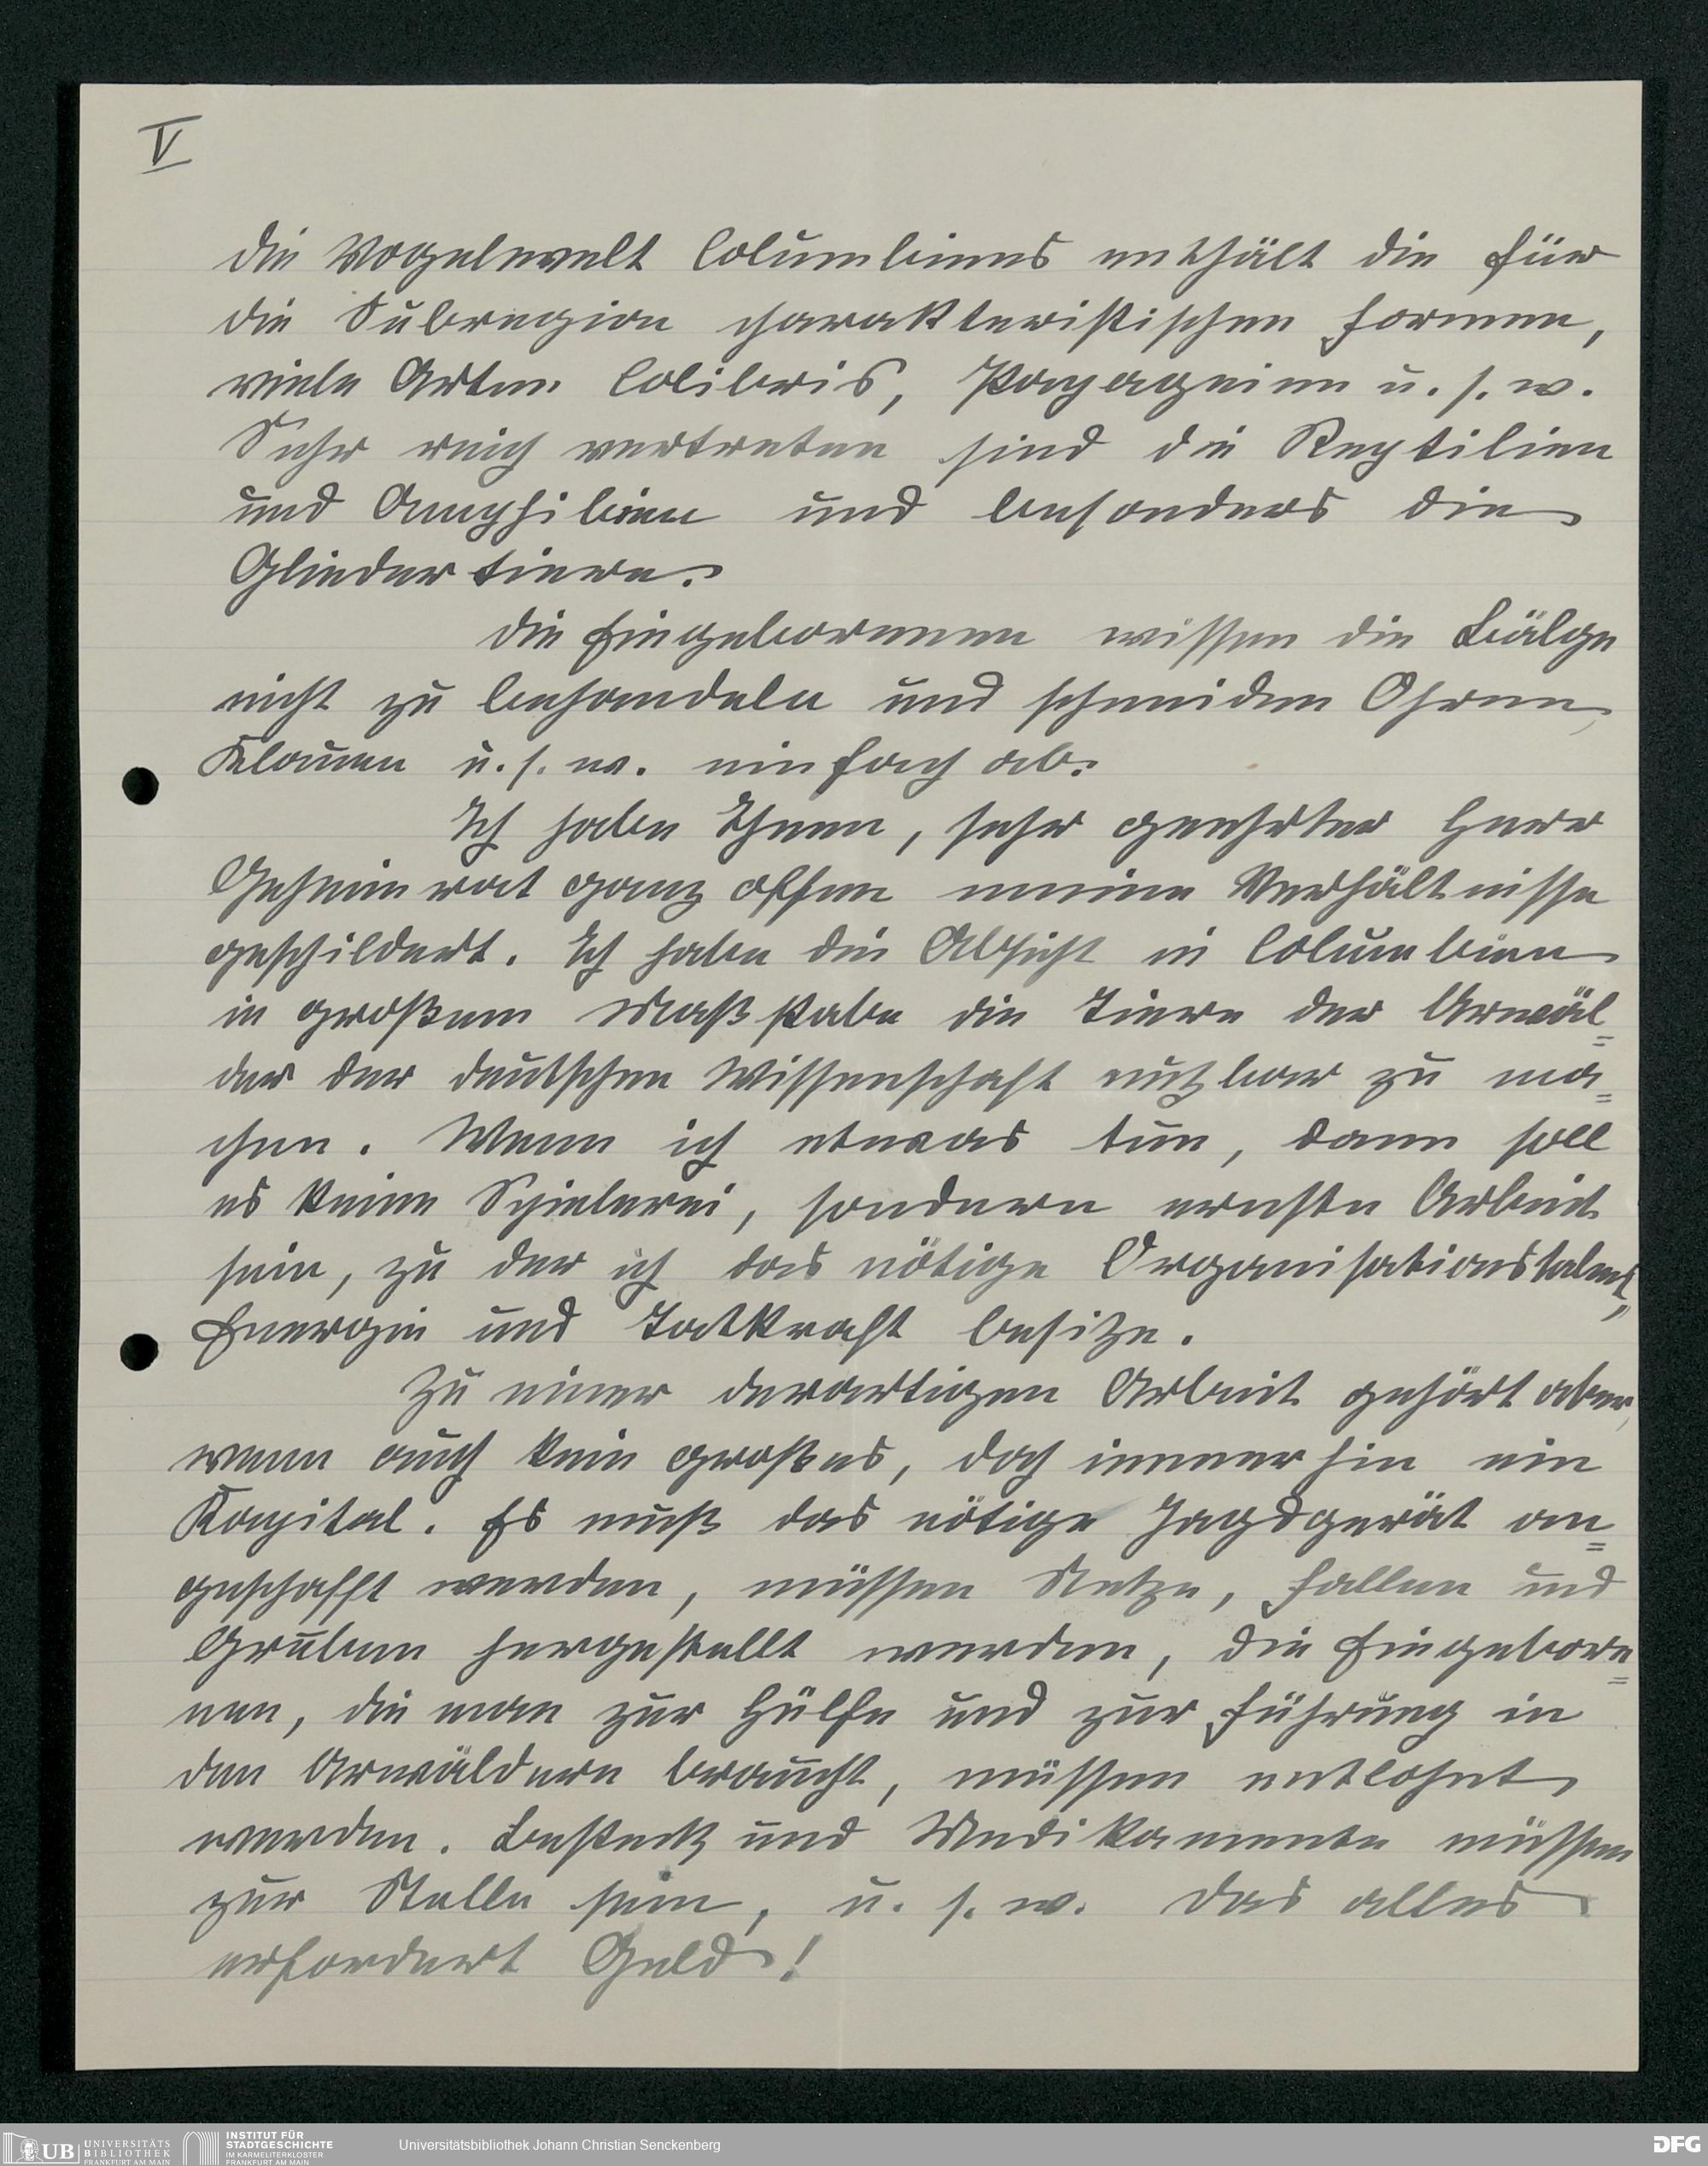 V
die Vogelwelt Columbiens enthält die für
die Subregion charakteristischen Formen,
viele Arten Colibris, Papageien u. s. w.
Sehr reich vertreten sind die Reptilien
und Amphibien und besonders die
Gliedertiere.
Die Eingeborenen wissen die Bälge
nicht zu behandeln und schneiden Ohren,
Klauen u. s. w. einfach ab.
Ich habe Ihnen, sehr geehrter Herr
Geheimrat ganz offen meine Verhältnisse
geschildert. Ich habe die Absicht in Columbien
in großem Maßstabe die Tiere der Urwäl=
der der deutschen Wissenschaft nutzbar zu ma=
chen. Wenn ich etwas tue, dann soll
es keine Spielerei, sondern ernste Arbeit
sein, zu der ich das nötige Organisationstalent,
Energie und Tatkraft besitze.
Zu einer derartigen Arbeit gehört aber,
wenn auch kein großes, doch immerhin ein
Kapital. Es muß das nötige Jagdgerät an=
geschafft werden, müssen Netze, Fallen und
Gruben hergestellt werden, die Eingebore=
nen, die man zur Hülfe und zur Führung in
den Urwäldern braucht, müssen entlohnt
werden. Besteck und Medikamente müssen
zur Stelle sein, u. s. w. Das alles
erfordert Geld!
UB UNIVERSITÄTS
BIBLIOTHEK
FRANKFURT AM MAIN
INSTITUT FÜR
STADTGESCHICHTE
IM KARMELITERKLOSTER
FRANKFURT AM MAIN
Universitätsbibliothek Johann Christian Senckenberg
DFG